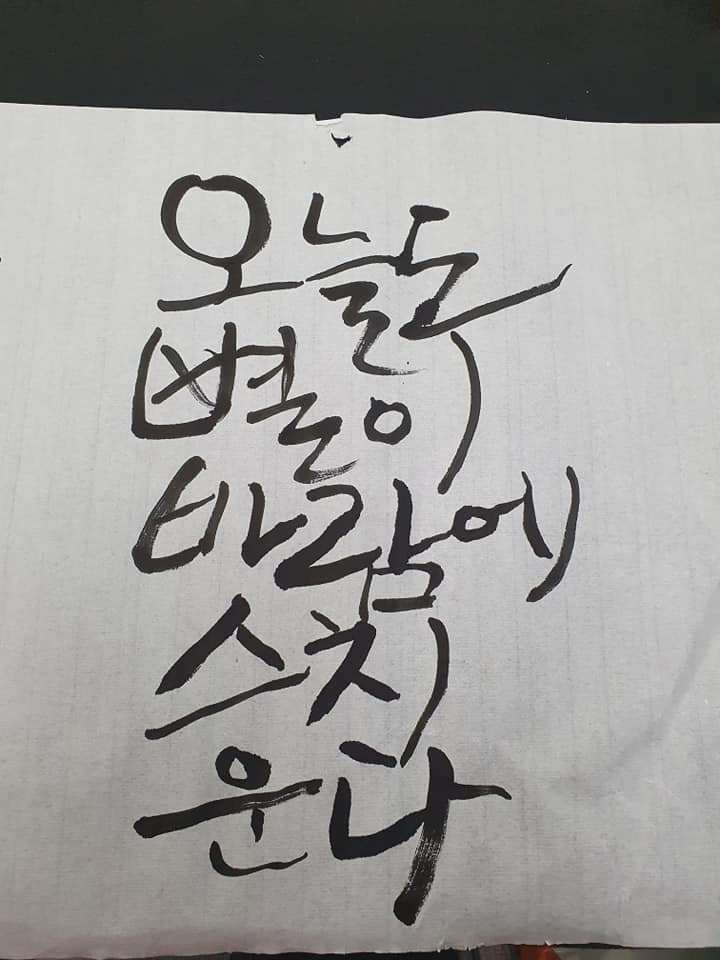 오늘도
별이
바람에
스치
운다